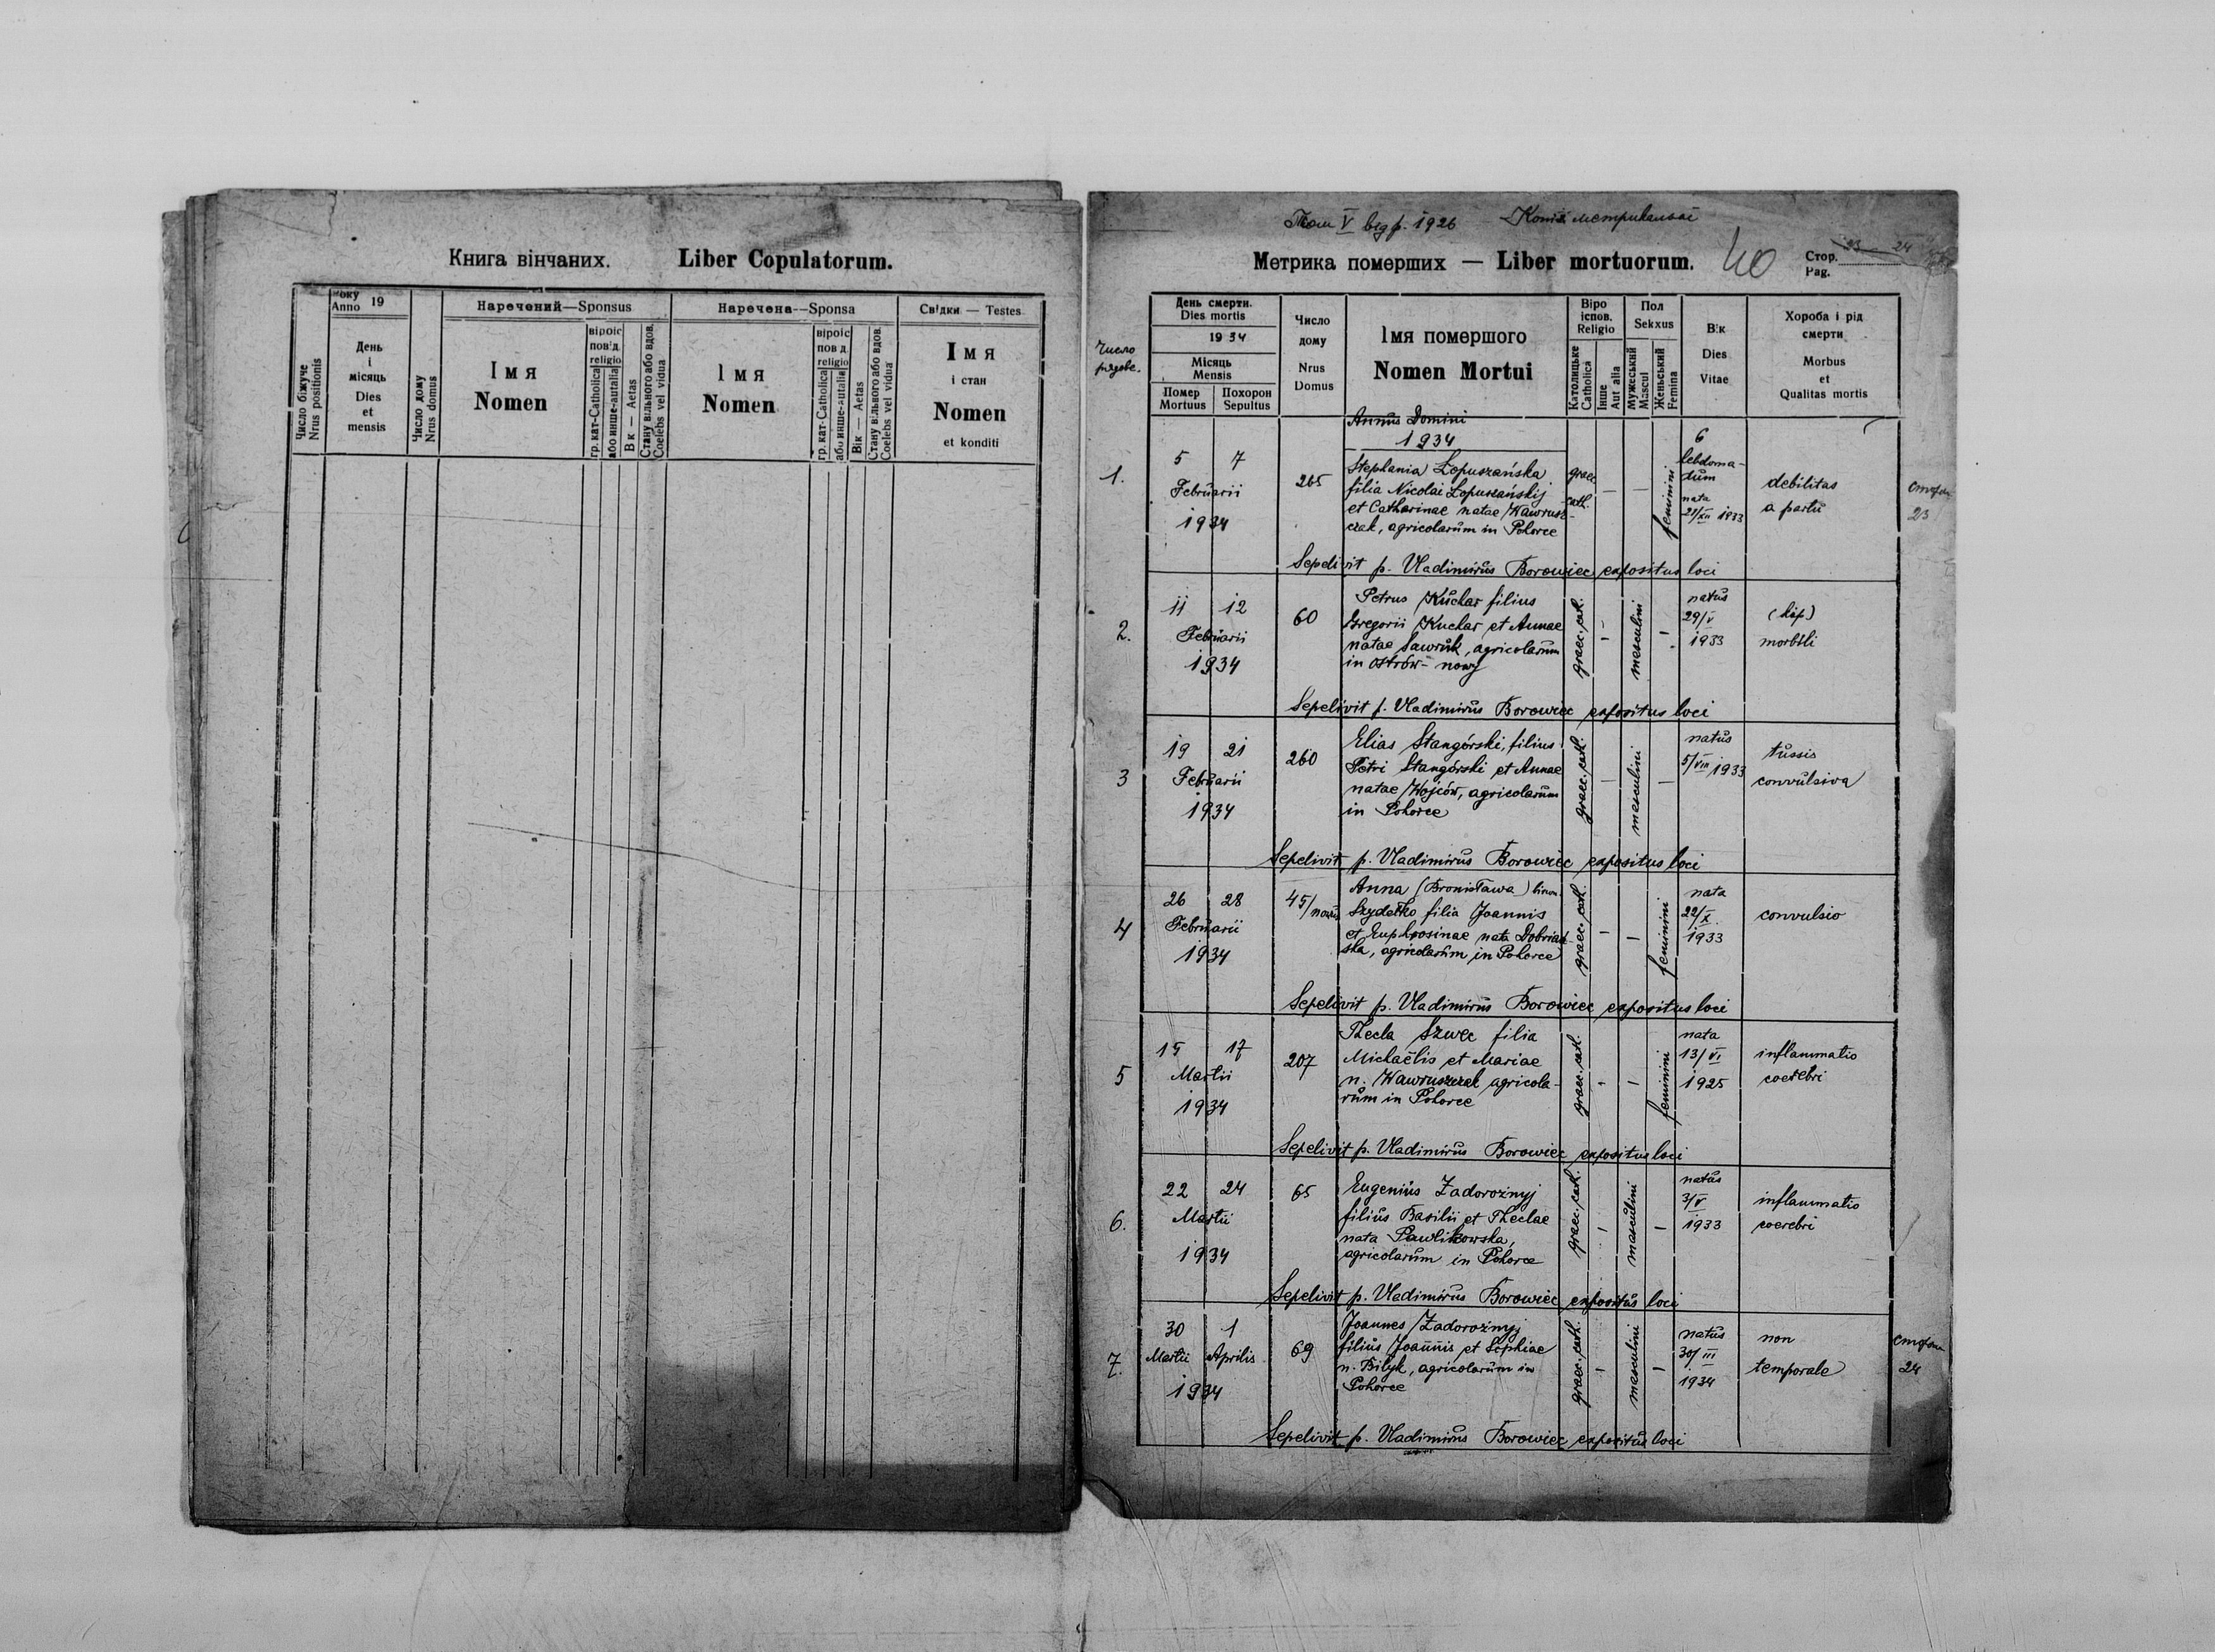 Книга вінчаних. Liber Copulatorum.
Року
Anno 19
Число біжуче
Nrus positionis
День
і
місяць
Dies
et
mensis
Число дому
Nrus domus
Наречений—Sponsus
Імя
Nomen
віроіс
пов'д.
religio
гр. кат-Catholica
або инше-autalia
Вік — Aetas
Стану вільного або вдов.
Coelebs vel vidua
Наречена—Sponsa
Імя
Nomen
віроіс
пов д.
religio
гр. кат-Catholica
або инше-autalia
Вік — Aetas
Стану вільного або вдов.
Coelebs vel vidua
Свідки — Testes
Імя
і стан
Nomen
et konditi
Том V від р. 1926 Копія метрикальна
Метрика померших — Liber mortuorum. 40
Стор. 23 - 24
Pag.
Число
День смерти.
Dies mortis
1934
Місяць
Mensis
Помер
Mortuus
Похорон
Sepultus
Число
дому
Nrus
Domus
Імя помершого
Nomen Mortui
Віро
іспов.
Religio
Католицьке
Catholica
Інше
Aut alia
Пол
Sekxus
Мужеський
Mascul
Женьський
Femina
Вік
Dies
Vitae
Хороба і рід
смерти
Morbus
et
Qualitas mortis
Annus Domini
1934
1. 5 7 Februarii 1934
265
Stephania Łopuszańska
filia Nicolai Łopuszańskij
et Catharinae natae Wawrusz-
czak, agricolarum in Pohorce
graec. cath.
— —
feminini
6
hebdoma-
dum
nata
21/XII 1933
debilitas
a partu
23
Sepelivit p. Vladimirus Borowiec expositus loci
2. 11 12 Februarii 1934
60
Petrus Kuchar filius
Gregorii Kuchar et Annae
natae Sawruk, agricolarum
in Ostrów-nowy
graec. cath.
masculini
natus
29/V
1933
morbilli
Sepelivit p. Vladimirus Borowiec expositus loci
3 19 21 Februarii 1934
260
Elias Stangórski, filius
Petri Stangórski et Annae
natae Wojców, agricolarum
in Pohorce
graec. cath.
masculini
natus
5/VIII 1933
tussis
convulsiva
Sepelivit p. Vladimirus Borowiec expositus loci
4 26 28 Februarii 1934
45/
Anna (Bronisława)
Szydełko filia Joannis
et Euphrosinae nata Dobriań-
ska, agricolarum in Pohorce
graec. cath.
feminini
nata
22/X
1933
convulsio
Sepelivit p. Vladimirus Borowiec expositus loci
5 15 17 Martii 1934
207
Thecla Szwec filia
Michaëlis et Mariae
n. Wawruszczak agricola-
rum in Pohorce
graec. cath.
feminini
nata
13/VI
1925
inflammatio
coerebri
Sepelivit p. Vladimirus Borowiec expositus loci
6. 22 24 Martii 1934
65
Eugenius Zadorożnyj
filius Basilii et Theclae
nata Pawlikowska,
agricolarum in Pohorce
graec. cath.
masculini
natus
3/V
1933
inflammatio
coerebri
Sepelivit p. Vladimirus Borowiec expositus loci
7. 30 1
Martii Aprilis
1934
69
Joannes Zadorożnyj
filius Joannis et Sophiae
n. Bilyk, agricolarum in
Pohorce
graec. cath.
masculini
natus
30/III
1934
non
temporale
24
Sepelivit p. Vladimirus Borowiec expositus loci